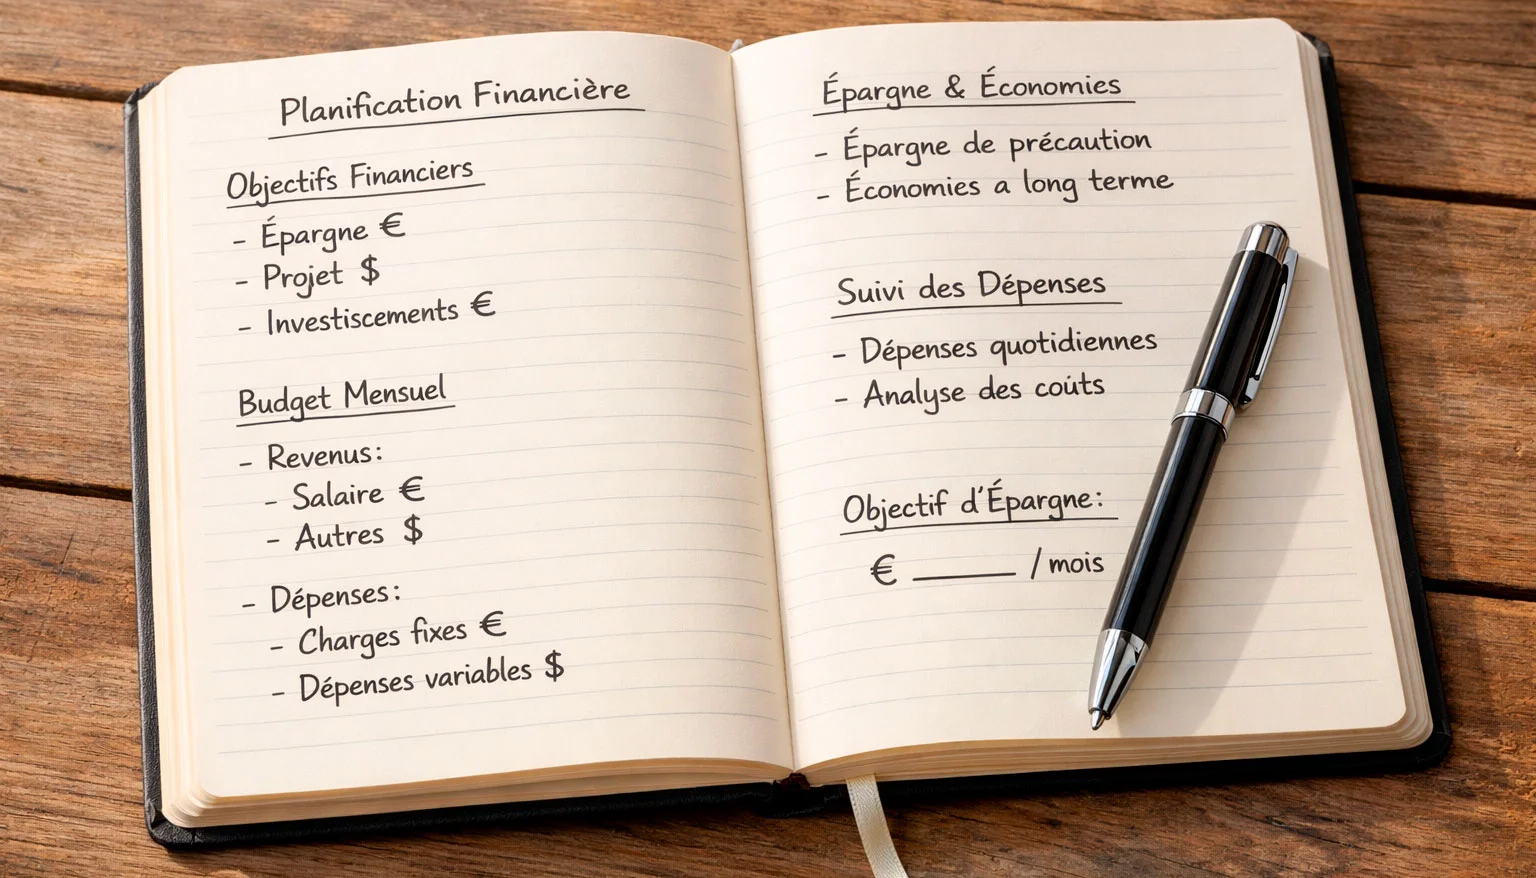 Planification Financière
Objectifs Financiers
- Épargne €
- Projet $
- Investiscements €
Budget Mensuel
- Revenus:
- Salaire €
- Autres $
- Dépenses:
- Charges fixes €
- Dépenses variables $
Épargne & Économies
- Épargne de précaution
- Économies a long terme
Suivi des Dépenses
- Dépenses quotidiennes
- Analyse des coûts
Objectif d'Épargne:
€ _____ / mois